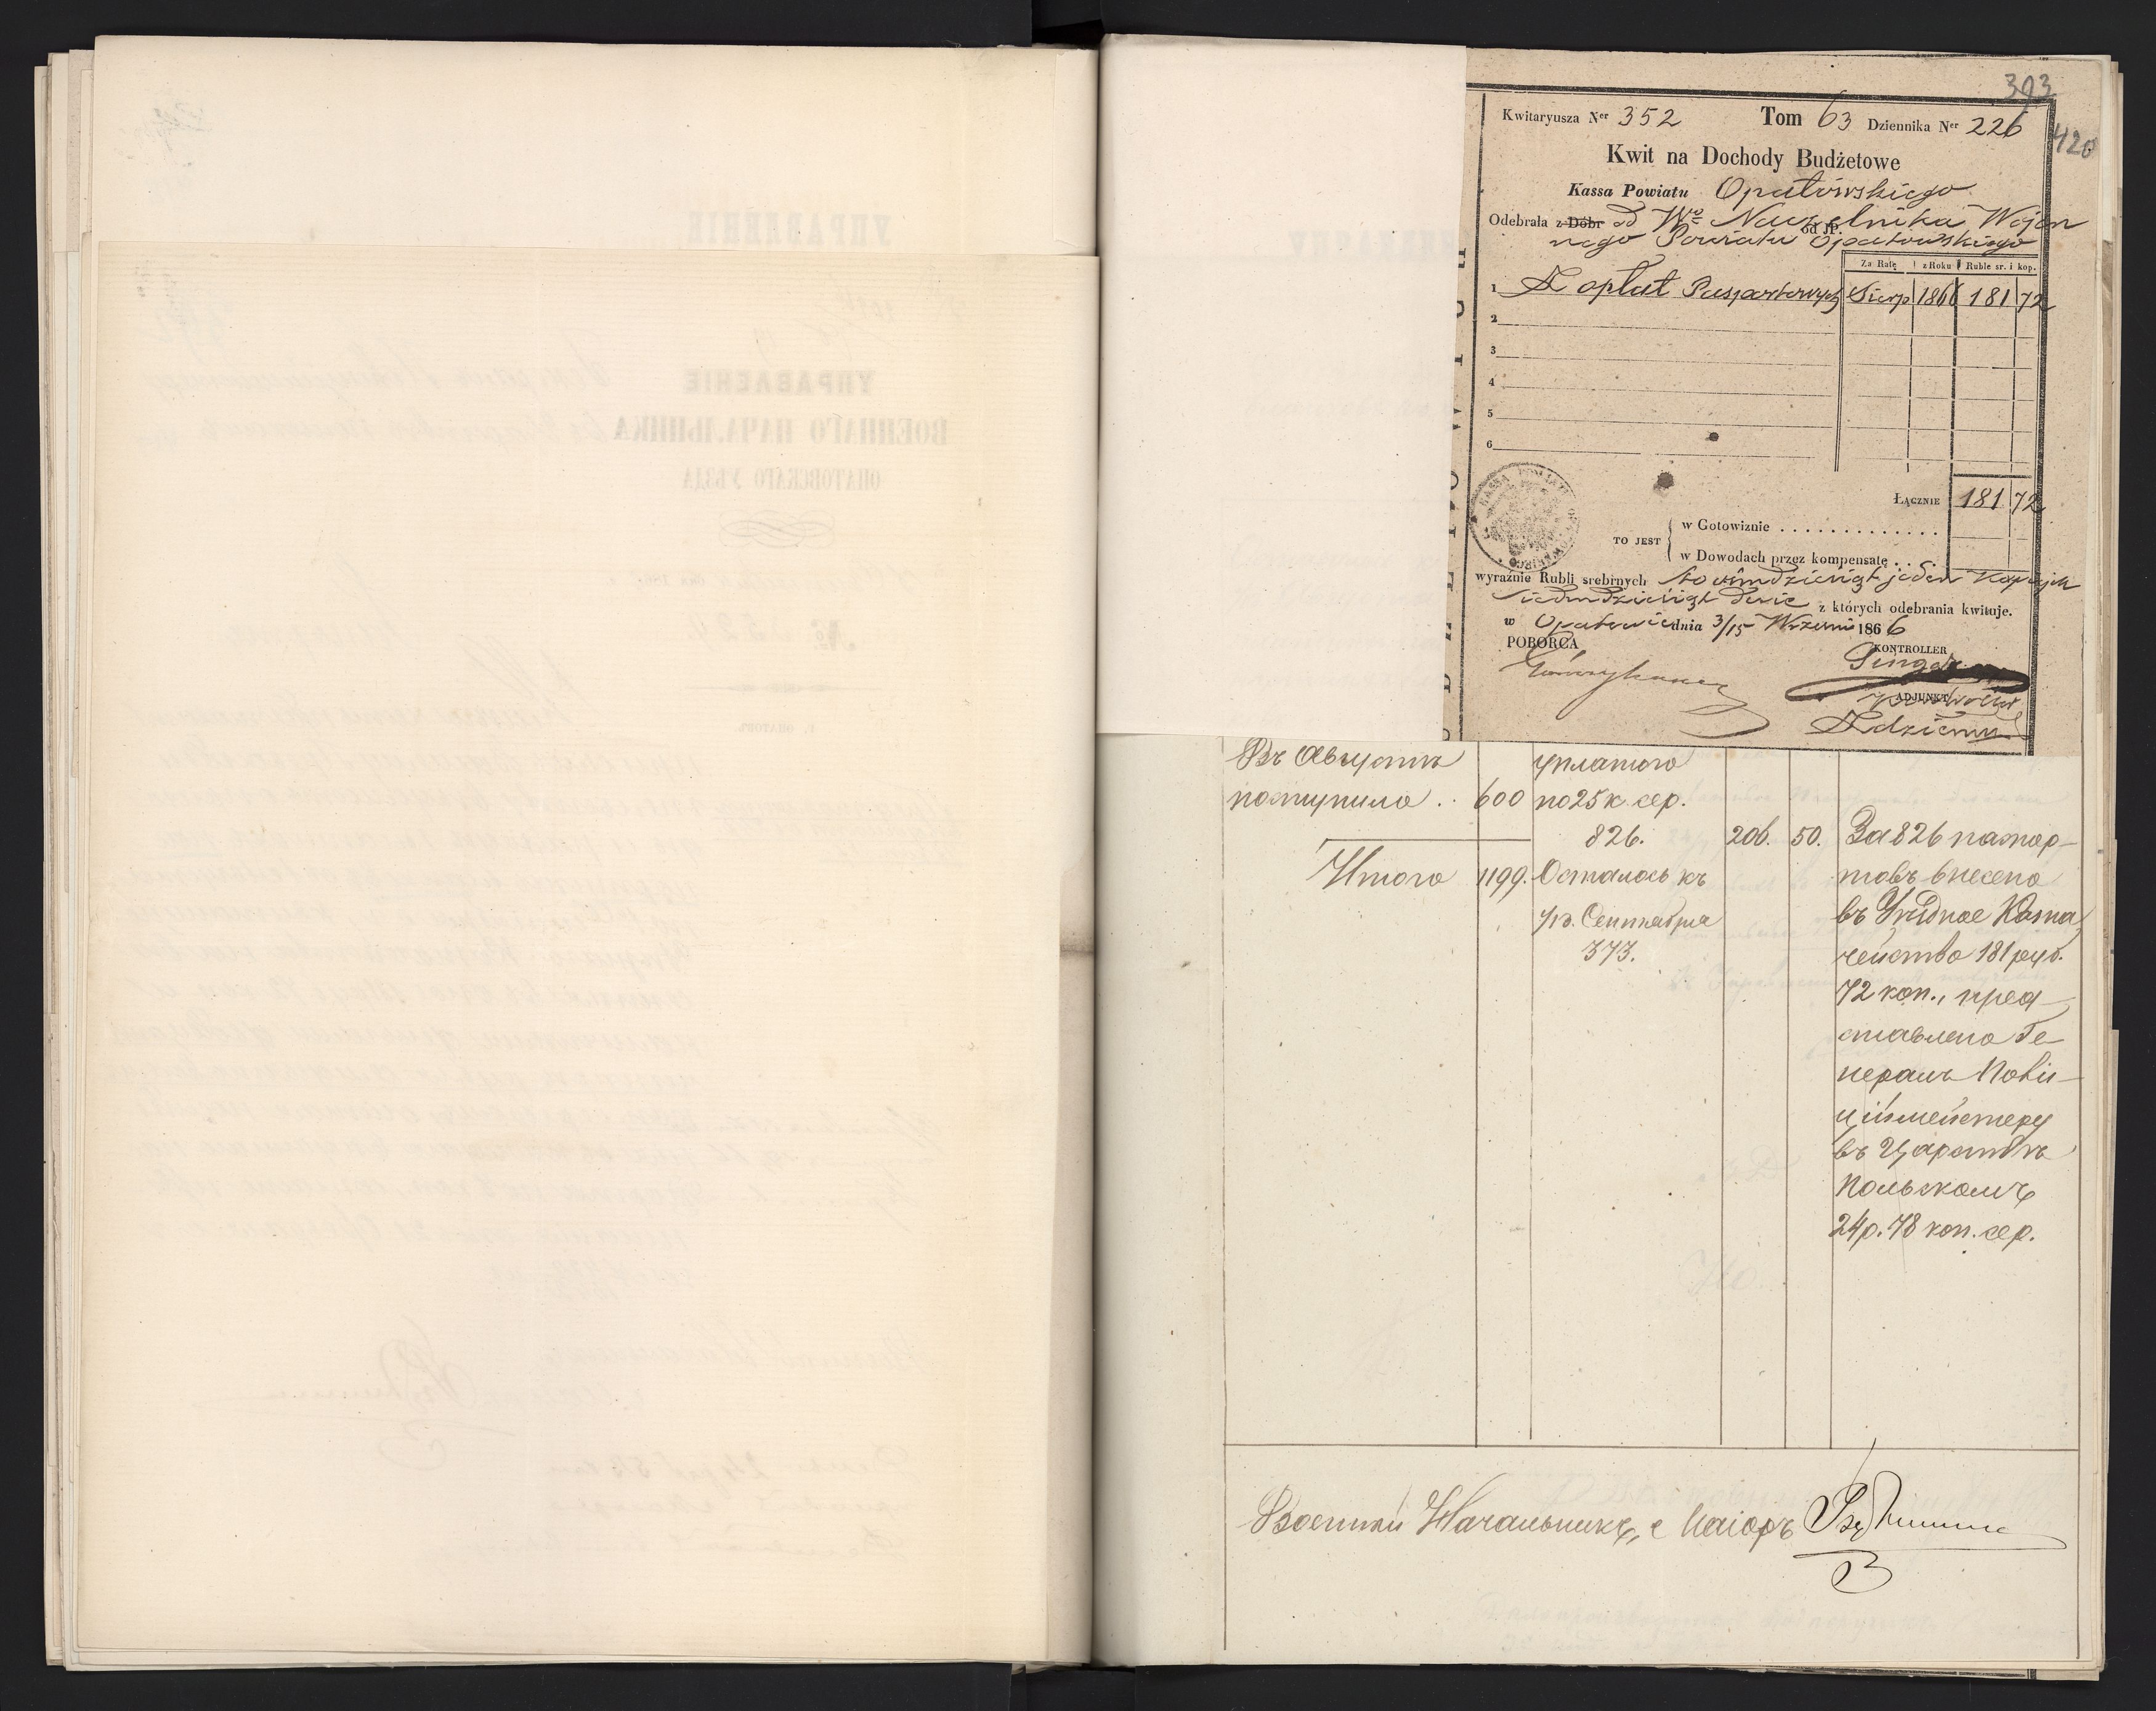 393
420
Kwitaryusza Ner 352 Tom 63 Dziennika Ner 226
Kwit na Dochody Budżetowe
Kassa Powiatu Opatowskiego
Odebrała z Dóbr od Wo Naczelnika Wojen
nego Powiatu od JP. Opatowskiego
Za Ratę z Roku Ruble sr. i kop.
1 Z opłat Paszportowych Sierp 1866 181 72
2
3
4
5
6
Łącznie 181 72
TO JEST
w Gotowiznie . . . . . . . . . . . .
w Dowodach przez kompensatę . . .
wyraźnie Rubli srebrnych Sto ośmdziesiąt jeden Kopiejek
siedmdziesiąt dwie z których odebrania kwituje.
w Opatowie dnia 3/15 Wrześni 1866
POBORCA KONTROLLER
ADJUNKT
Въ Августѣ
поступило .. 600
Итого 1199.
уплатою
по 25 к. сер.
826. 206. 50.
Осталось къ
1му Сентября
373.
За 826 паспор-
товъ внесено
въ Уѣздное Казна
чейство 181 руб.
72 коп., пред-
ставлено Ге-
нералъ Поли-
ціймейстеру
въ Царствѣ
Польскомъ
24 р. 78 коп. сер.
Военный Начальникъ, Маіоръ
УПРАВЛЕНІЕ
УПРАВЛЕНІЕ
ВОЕННАГО НАЧАЛЬНИКА
ОПАТОВСКАГО УѢЗДА